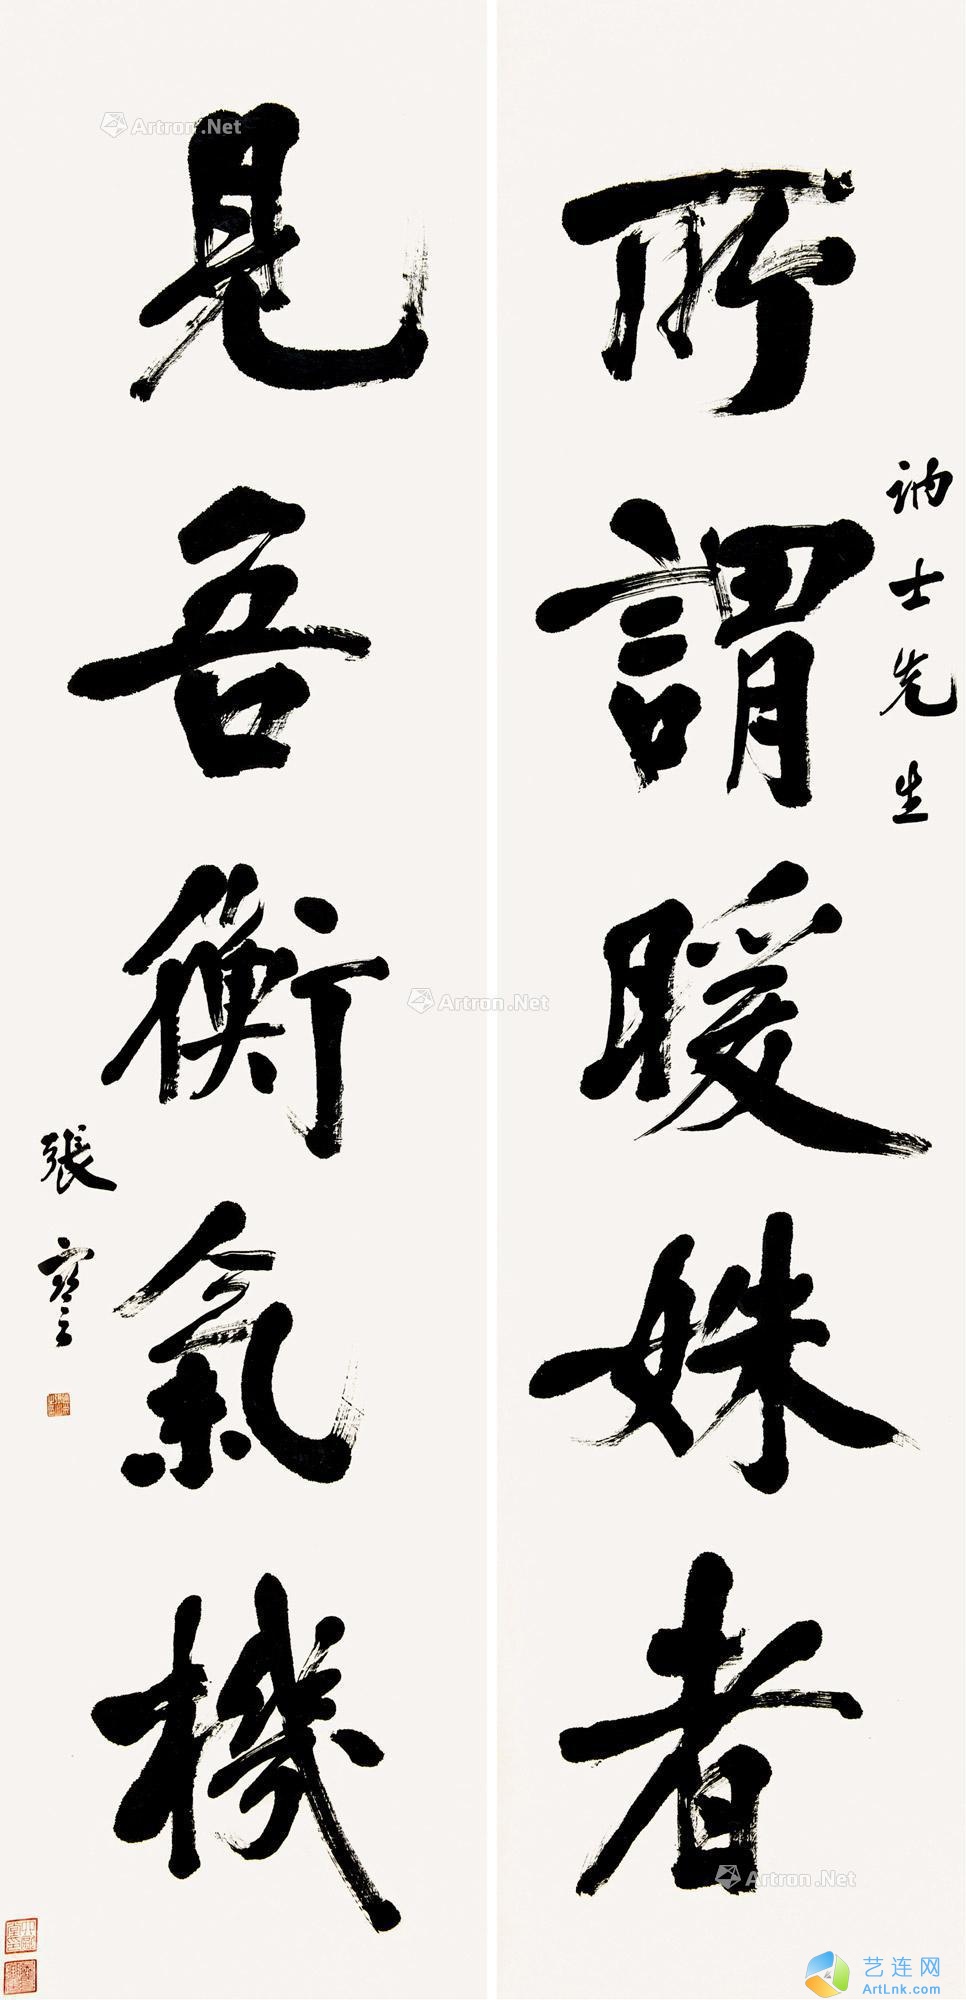 訥士先生
所謂暖姝者
見吾衡氣機
張謇
Artron.Net
Artron.Net
Artron.Net
艺连网
ArtLnk.com